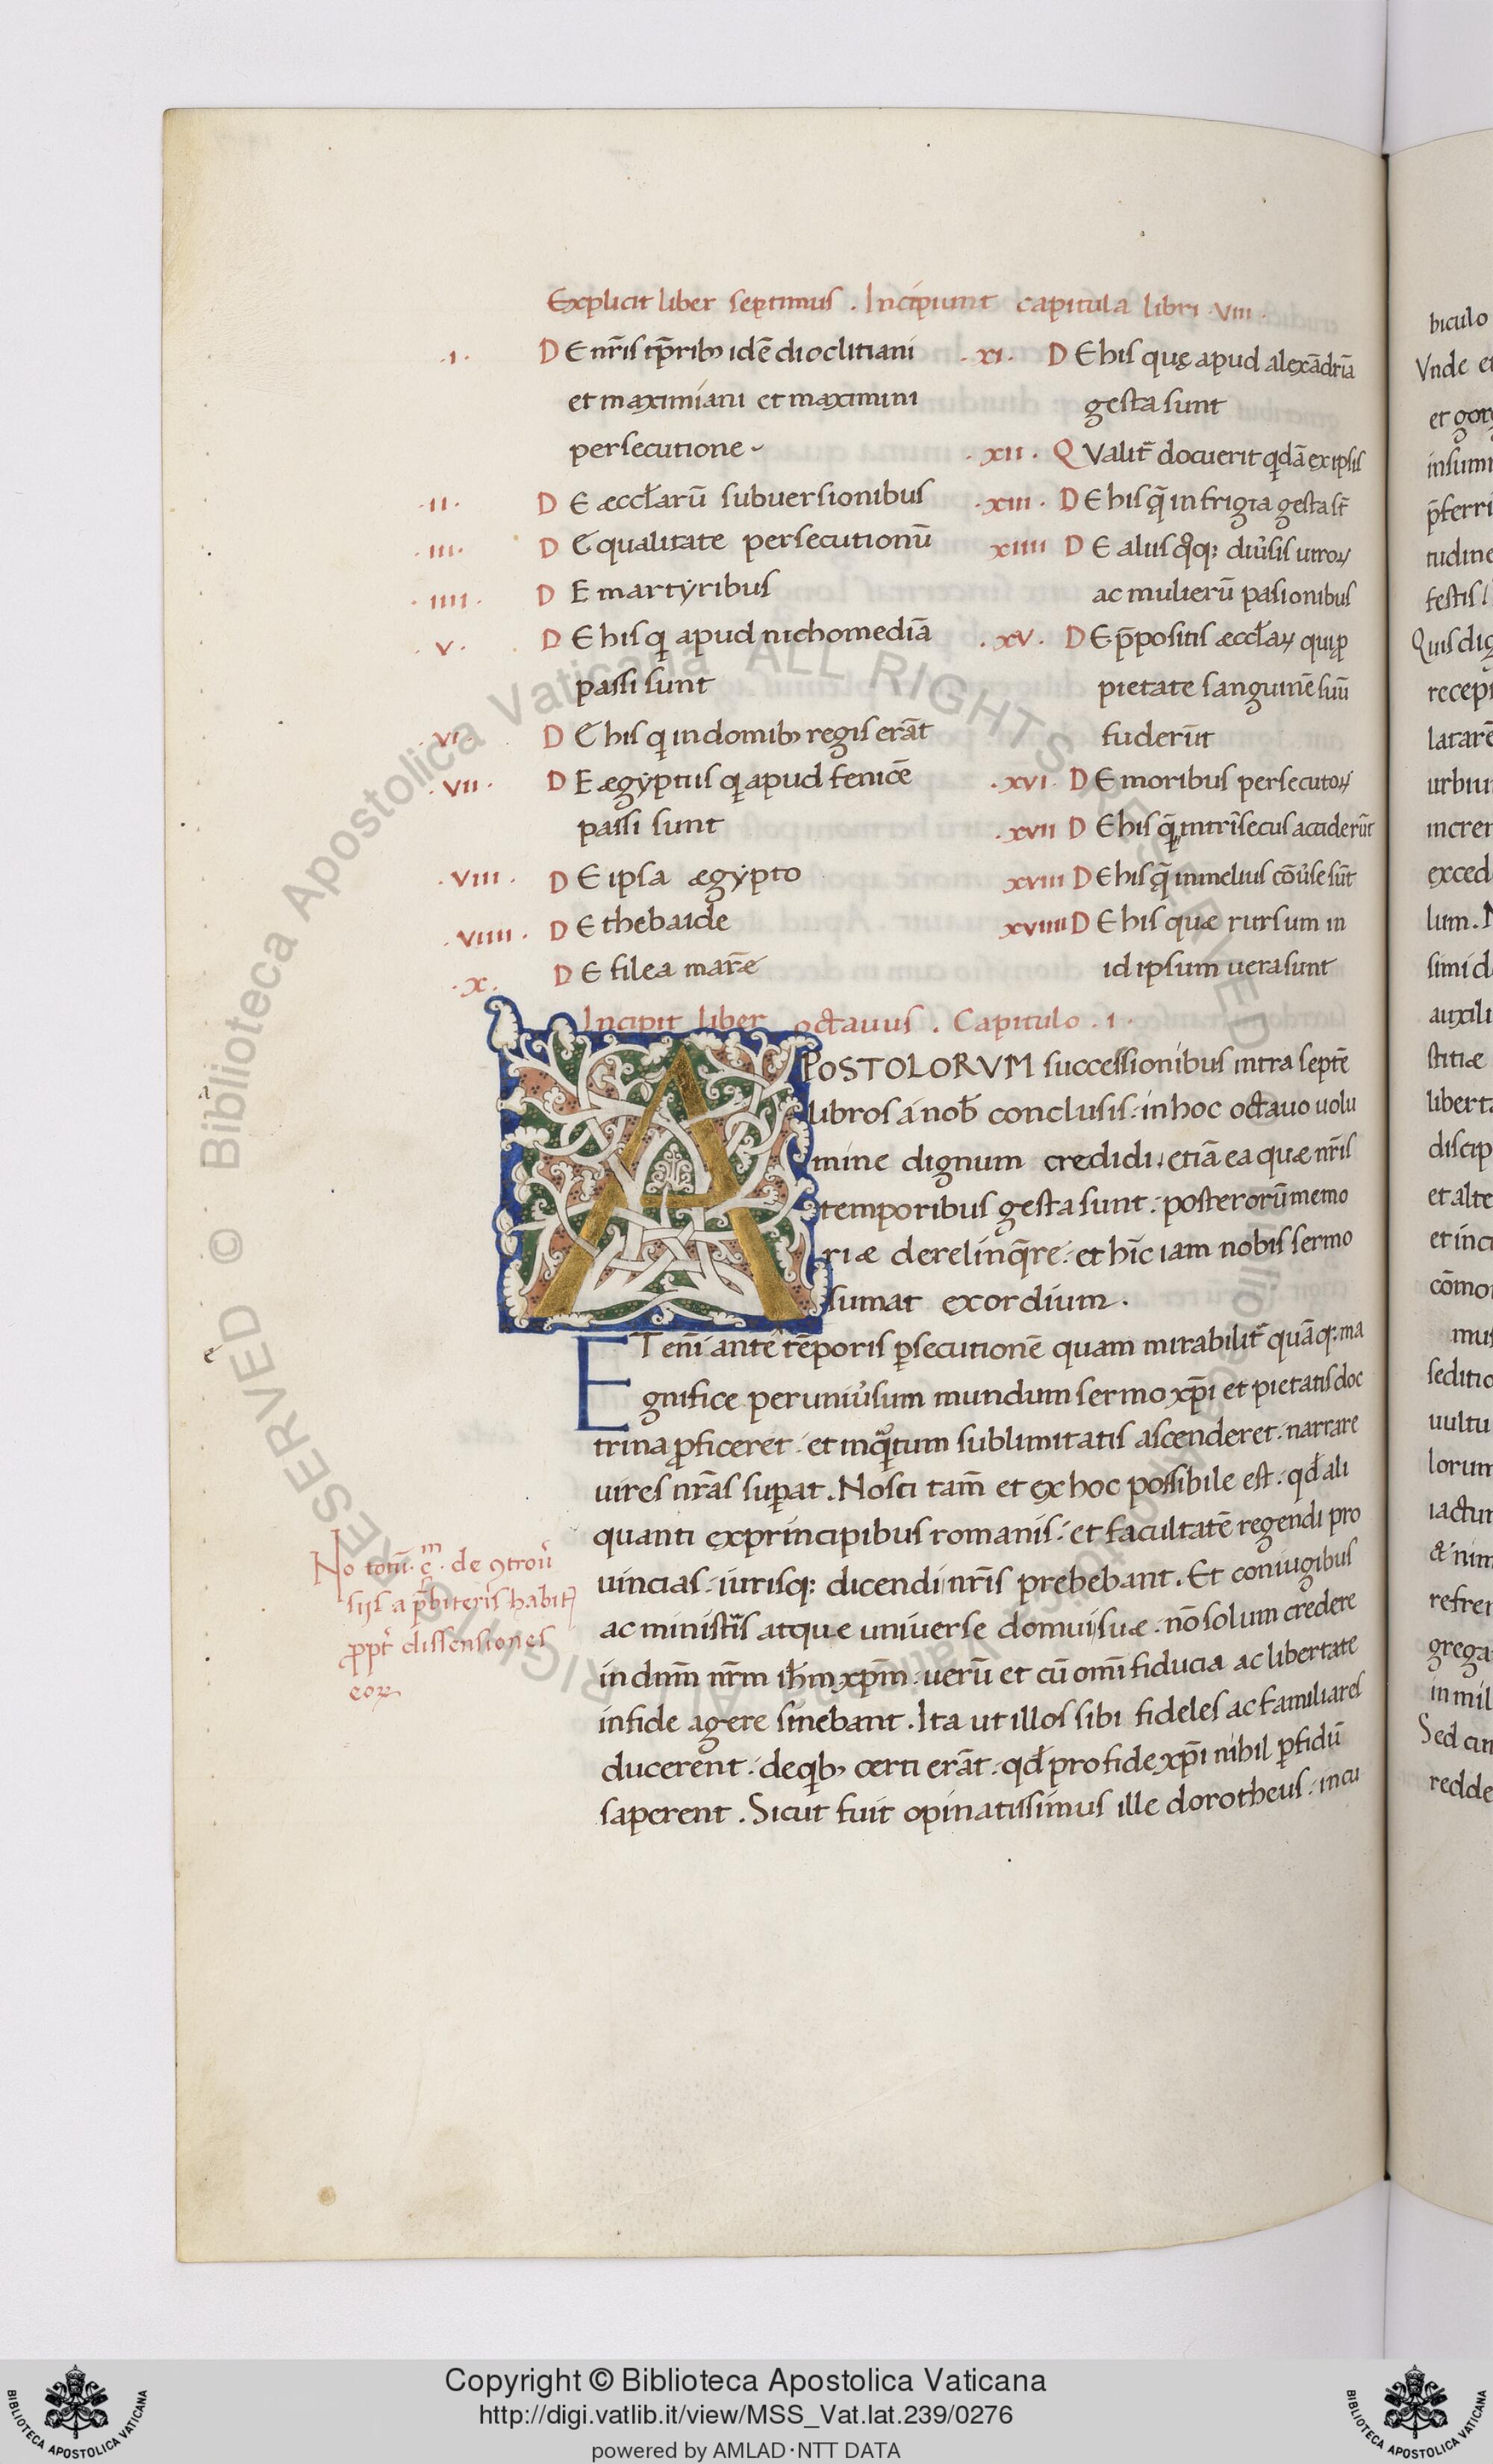 Explicit liber septimus . Incipiunt capitula libri . VIII .
.I. DE nr̄is tp̄rib; idē dioclitiani
et maximiani et maximini
persecutione
.II. DE æccl̄arū subuersionibus
.III. DE qualitate persecutionū
.IIII. DE martẏribus
.V. DE his q̣ apud nichomediā
passi sunt
.VI. DE his q̣ in domib; regis erāt
.VII. DE ægẏptiis q̣ apud fenicē
passi sunt
.VIII. DE ipsa ægẏpto
.VIIII. DE thebaide
.X. DE filea mar̄e
.XI. DE his quę apud alexādriā
gesta sunt
.XII. QValit̄ docuerit qdā ex ipsis
.XIII. DE his q̄ in frigia gesta st̄
XIIII DE aliis qoq; diūsis uiroꝝ
ac mulierū pasionibus
.XV. DE p̄positis æccl̄aꝝ qui ꝓ
pietate sanguinē suū
fuderūt
.XVI. DE moribus persecutoꝝ
.XVII DE his q̄ intrīsecus acciderūt
XVIII DE his q̄ in melius cōuse sūt
XVIIII DE his quæ rursum in
id ipsum uerasunt
Incipit liber octauus . Capitulo . I .
APOSTOLORVM successionibus intra septē
libros a nob̄ conclusis : in hoc octauo uolu
mine dignum credidi . etiā ea quæ nr̄is
temporibus gesta sunt : posterorū memo
riæ derelinq̄re : et hīc iam nobis sermo
sumat exordium .
ET enī ante tēporis ꝑsecutionē quam mirabilit̄ quāq; ma
gnifice per uniūsum mundum sermo xp̄i et pietatis doc
trina ꝓficeret : et inqͣtum sublimitatis ascenderet : narrare
uires nr̄as suꝑat . Nosci tam̄ et ex hoc possibile est : qđ ali
quanti ex principibus romanis : et facultatē regendi pro
uincias : iurisq; dicendi nr̄is prebebant . Et coniugibus
ac ministr̄is atque universe domui suæ : nō solum credere
in dnm̄ nr̄m ih̄m xp̄m : uerū et cū omī fiducia ac libertate
in fide agere sinebant . Ita ut illos sibi fideles ac familiares
ducerent : de qib; certi erāt : qđ pro fide xp̄i nihil ꝑfidū
saperent . Sicut fuit opinatissimus ille dorotheus : incu
No totū . c̄m . de ꝯtrou̅
siis a p̄biteris habit
ꝓpt̄ dissensiones
eoꝝ
biculo
Vnde et
et gorg
insum
p̄ferri
tudine
festis
Quis dig
recepi
latarē
urbiu
incre
exced
lum . N
simi d
auxili
stitiæ
liberta
discip
et alte
et inci
cōmo
mu
seditio
uultu
lorum
iactu
nim
refre
grega
in mil
Sed cu
redde
Copyright © Biblioteca Apostolica Vaticana
http://digi.vatlib.it/view/MSS_Vat.lat.239/0276
powered by AMLAD·NTT DATA
BIBLIOTECA APOSTOLICA VATICANA
BIBLIOTECA APOSTOLICA VATICANA